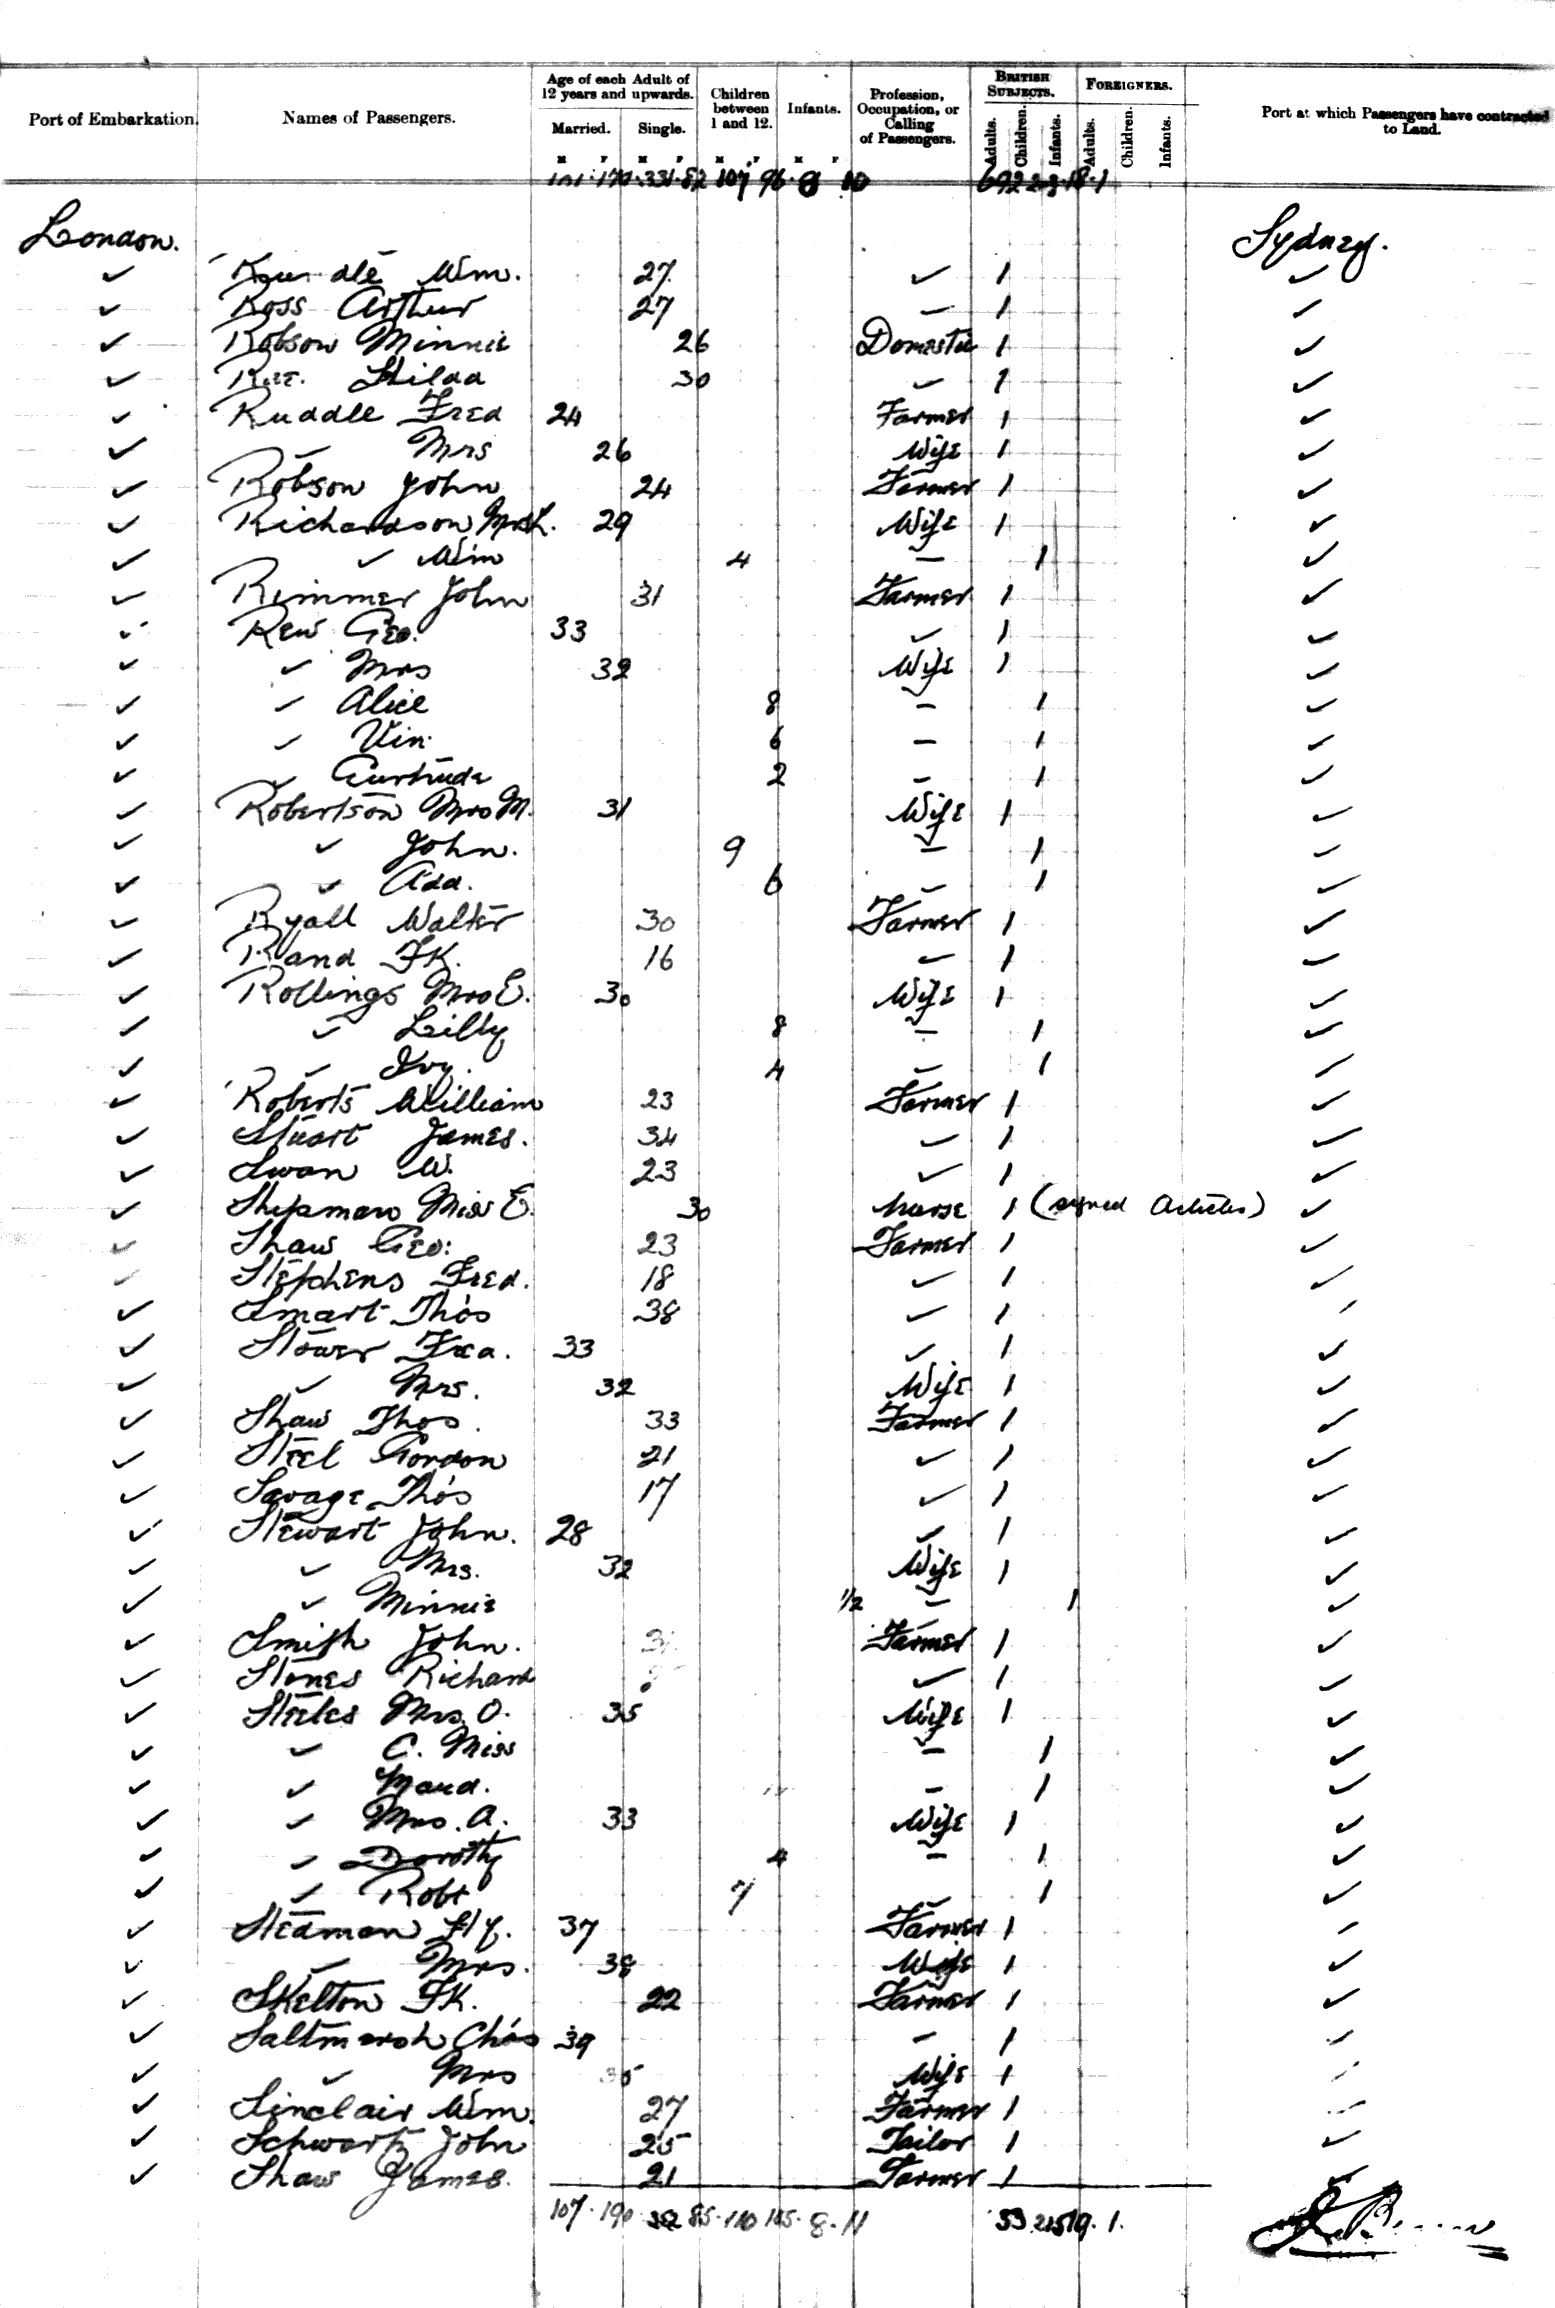 Port of Embarkation. Names of Passengers. Age of each Adult of 12 years and upwards. Children between 1 and 12. Infants. Profession, Occupation, or Calling of Passengers. BRITISH SUBJECTS. FOREIGNERS. Port at which Passengers have contracted to Land.
Married. Single. Adults. Children. Infants. Adults. Children. Infants.
M F M F M F M F
170 331 82 107 96 8 10 692 18 1
London. Sydney.
✓ Wm. 27 ✓ 1 ✓
✓ Ross Arthur 27 — 1 ✓
✓ Robson Minnie 26 Domestic 1 ✓
✓ Rae. Hilda 30 ✓ 1 ✓
✓ Ruddle Fred 24 Farmer 1 ✓
✓ — Mrs 26 Wife 1 ✓
✓ Robson John 24 Farmer 1 ✓
✓ Richardson Mrs L. 29 Wife 1 ✓
✓ ✓ Wm 4 — 1 ✓
✓ Rimmer John 31 Farmer 1 ✓
✓ Rew Geo. 33 ✓ 1 ✓
✓ ✓ Mrs 32 Wife 1 ✓
✓ ✓ Alice 8 — 1 ✓
✓ ✓ Vin. 6 — 1 ✓
✓ ✓ Gurtrude 2 — 1 ✓
✓ Robertson Mrs M. 31 Wife 1 ✓
✓ ✓ John. 9 — 1 ✓
✓ ✓ Ada. 6 — 1 ✓
✓ Ryall Walter 30 Farmer 1 ✓
✓ Rand Fk. 16 ✓ 1 ✓
✓ Rollings Mrs E. 30 Wife 1 ✓
✓ ✓ Lilly 8 — 1 ✓
✓ ✓ Ivy. 4 — 1 ✓
✓ Roberts William 23 Farmer 1 ✓
✓ Stuart James. 34 ✓ 1 ✓
✓ Swan W. 23 ✓ 1 ✓
✓ Shipman Miss E. 30 Nurse 1 (signed Articles) ✓
✓ Shaw Geo: 23 Farmer 1 ✓
✓ Stephens Fred. 18 ✓ 1 ✓
✓ Smart Thos 38 ✓ 1 ✓
✓ Stower Fred. 33 ✓ 1 ✓
✓ ✓ Mrs. 32 Wife 1 ✓
✓ Shaw Thos. 33 Farmer 1 ✓
✓ Steel Gordon 21 ✓ 1 ✓
✓ Savage Thos 17 ✓ 1 ✓
✓ Stewart John. 28 ✓ 1 ✓
✓ ✓ Mrs. 32 Wife 1 ✓
✓ ✓ Minnie 1/2 — 1 ✓
✓ Smith John. Farmer 1 ✓
✓ Stones Richard ✓ 1 ✓
✓ Steeles Mrs. O. 35 Wife 1 ✓
✓ ✓ C. Miss — 1 ✓
✓ ✓ Maud. — 1 ✓
✓ ✓ Mrs. A. 33 Wife 1 ✓
✓ ✓ Dorothy 4 — 1 ✓
✓ ✓ Robt 7 — 1 ✓
✓ Steaman Hy. 37 Farmer 1 ✓
✓ ✓ Mrs. 38 Wife 1 ✓
✓ Skelton Fk. 22 Farmer 1 ✓
✓ Saltmarsh Chas 39 — 1 ✓
✓ ✓ Mrs 35 Wife 1 ✓
✓ Sinclair Wm. 27 Farmer 1 ✓
✓ Schwartz John 25 Tailor 1 ✓
✓ Shaw James. 21 Farmer 1 ✓
107. 190 85. 110 105. 8. 11 33 215 19. 1.